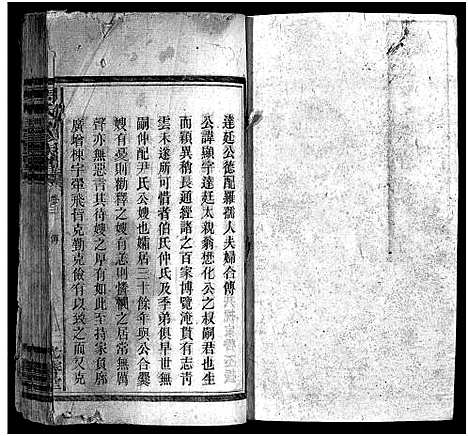 達廷公德配羅孺人夫婦合傳
公諱顯字達廷太親翁懋化公之叔嗣君也生
而穎異稍長通經諸之百家博覽淹貫有志青
雲未遂所可惜者伯氏仲氏及季弟俱早世無
嗣仲配尹氏公嫂也孀居三十餘年與公合爨
嫂有憂則勸釋之嫂有恙則憐恤之居常無厲
聲亦無惡言其待嫂之厚有如此至持家負郭
廣增棟宇翬飛皆克勤克儉有以致之而又克